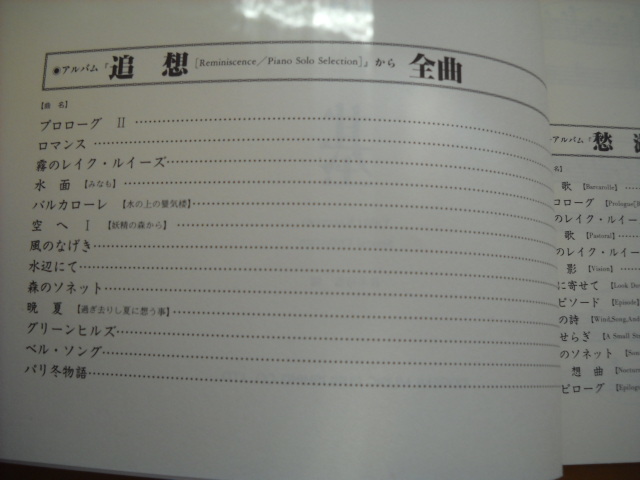 ●アルバム『追想[Reminiscence／Piano Solo Selection]』から 全曲
【曲名】
プロローグ Ⅱ
ロマンス
霧のレイク・ルイーズ
水面【みなも】
バルカローレ【水の上の蜃気楼】
空へⅠ【妖精の森から】
風のなげき
水辺にて
森のソネット
晩夏【過ぎ去りし夏に想う事】
グリーンヒルズ
ベル・ソング
パリ冬物語
アルバム『愁
名】
歌【Barcarolle】
コローグ【Prologue[
のレイク・ルイー
歌【Pastoral】
のレイク・ルイー
影【Vision】
に寄せて【Look
ピソード【Episode】
の詩【Wind,Song,And
せらぎ【A Small
のソネット
想曲
ピローグ【Epilogue